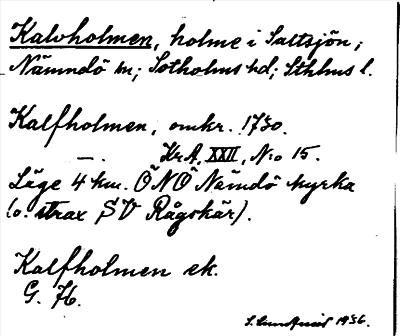 Kalvholmen, holme i Saltsjön;
Nämndö sn; Sotholms hd; Sthlms l.
Kalfholmen, omkr. 1730.
—. Kr A, XXII, No 15.
Läge 4 km. ÖNÖ Nämdö kyrka
(o. strax SV Rågskär).
Kalfholmen ek.
G. 76.
1936.